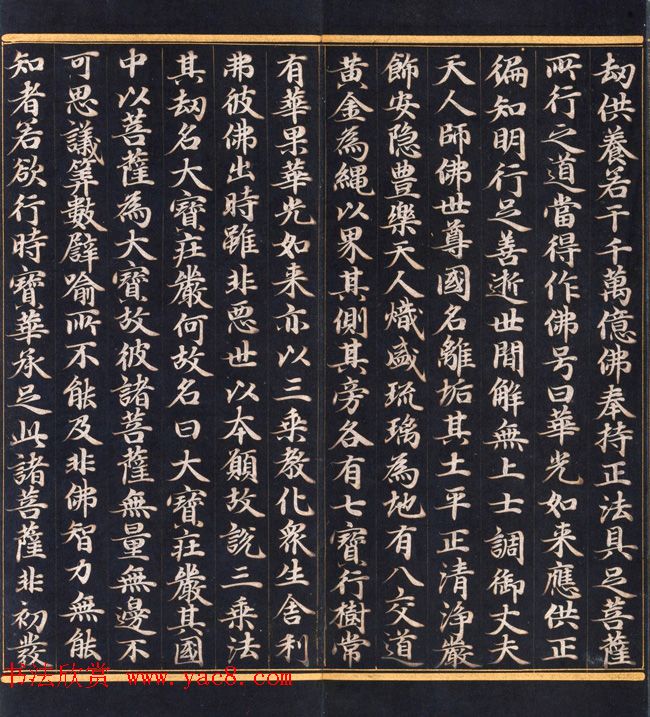 劫供養若干千萬億佛奉持正法具足菩薩
所行之道當得作佛号曰華光如来應供正
徧知明行足善逝世間解無上士調御丈夫
天人師佛世尊國名離垢其土平正清淨嚴
飾安隐豊樂天人熾盛琉璃為地有八交道
黃金為繩以界其側其旁各有七寶行樹常
有華果華光如来亦以三乗教化衆生舎利
弗彼佛出時雖非惡世以本願故説三乗法
其劫名大寶莊嚴何故名曰大寶莊嚴其國
中以菩薩為大寶故彼諸菩薩無量無邊不
可思議筭數譬喻所不能及非佛智力無能
知者若欲行時寶華承足此諸菩薩非初發
书法欣赏 www.yac8.com